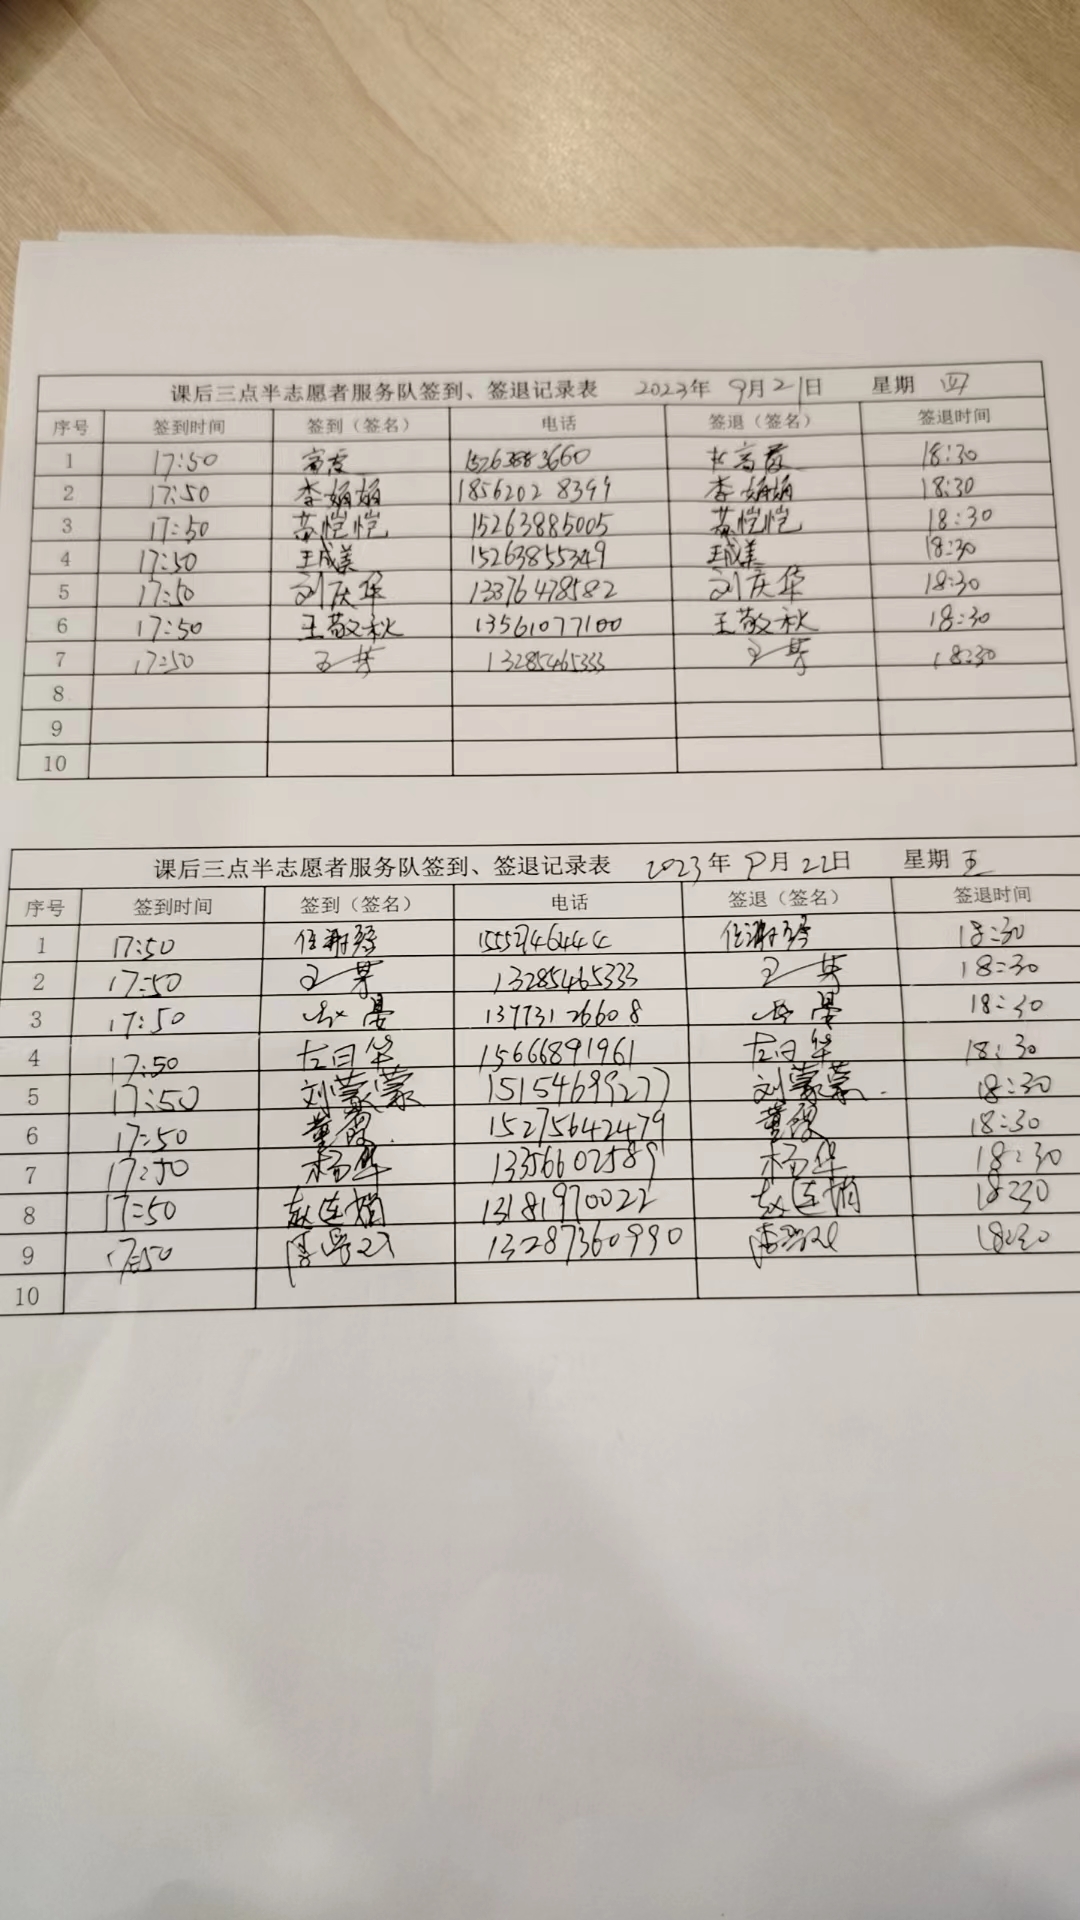 课后三点半志愿者服务队签到、签退记录表 2023年 9月21日 星期 四
序号 签到时间 签到（签名） 电话 签退（签名） 签退时间
1 17:50 高霞 15263883660 杜高霞 18:30
2 17:50 李娟娟 18562028399 李娟娟 18:30
3 17:50 苏恺恺 15263885005 苏恺恺 18:30
4 17:50 王成美 15263855349 王成美 18:30
5 17:50 刘庆华 13376478582 刘庆华 18:30
6 17:50 王敬秋 13561077100 王敬秋 18:30
7 17:50 王芳 13285465333 王芳 18:30
8
9
10
课后三点半志愿者服务队签到、签退记录表 2023年 9月22日 星期 五
序号 签到时间 签到（签名） 电话 签退（签名） 签退时间
1 17:50 18:30
2 17:50 王芳 13285465333 王芳 18:30
3 17:50 13773126608 18:30
4 17:50 左曰华 15666891961 左曰华 18:30
5 17:50 刘蒙蒙 15154699277 刘蒙蒙 18:30
6 17:50 董霞 15275642479 董霞 18:30
7 17:50 杨华 13356602589 杨华 18:30
8 17:50 赵连娟 13181970022 赵连娟 18:30
9 17:50 13287360990 18:30
10